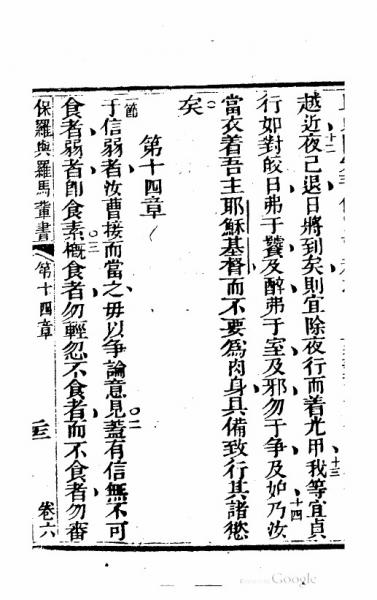 越近夜已退日將到矣則宜除夜行而着光甲我等宜貞
十二
十三
行如對皎日弗于饕及醉弗于室及邪勿于争及妒乃汝
十四
當衣着吾主耶穌基督而不要為肉身具備致行其諸慾
矣
第十四章
節
于信弱者汝曹接而當之毋以争論意見蓋有信無不可
二
食者弱者卽食素槪食者勿輕忽不食者而不食者勿審
三
保羅與羅馬輩書
第十四章
二三
卷六
Google